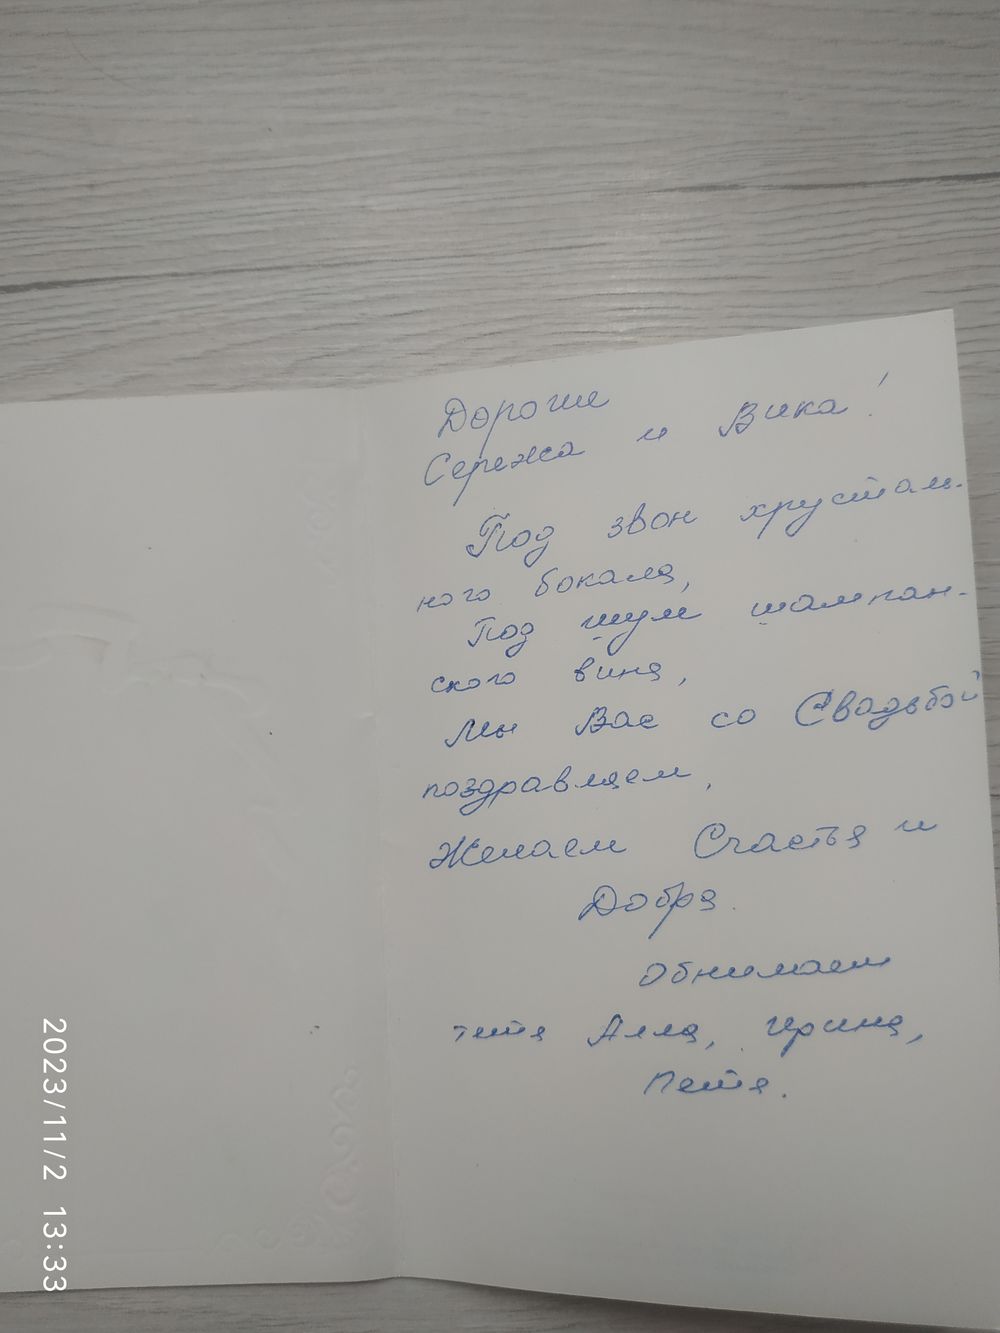 Дорогие
Сережа и Вика!
Под звон хрусталь-
ного бокала,
Под шум шампан-
ского вина,
Мы Вас со Свадьбой
поздравляем,
Желаем Счастья и
Добра.
Обнимаем
тетя Алла, Ирина,
Петя.
2023/11/2 13:33